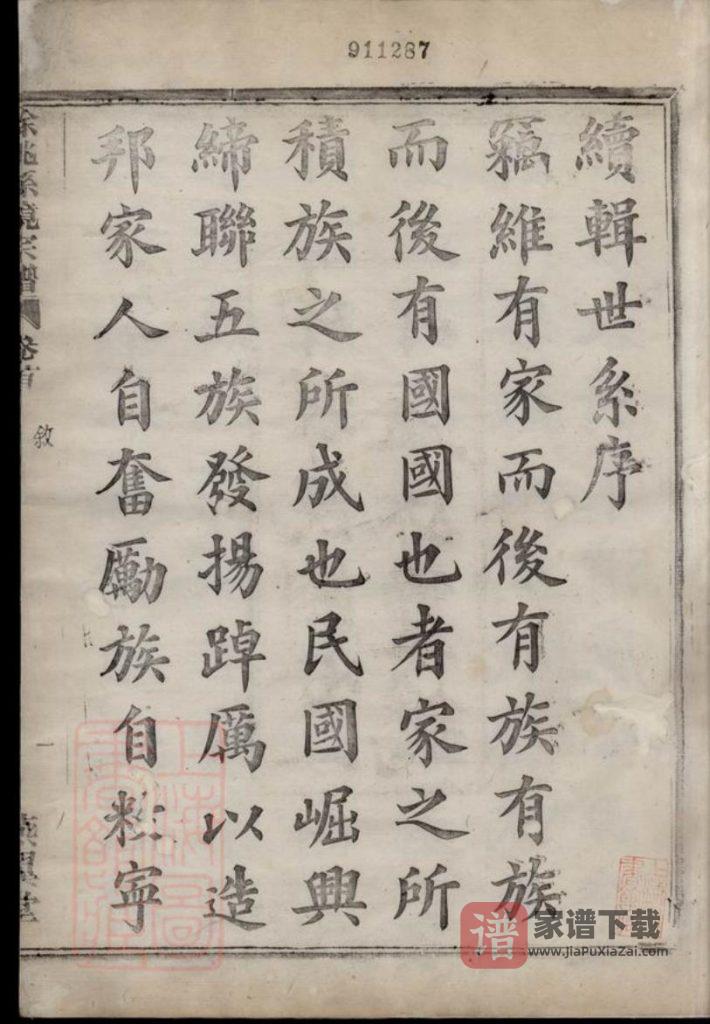 911287
續輯世系序
竊維有家而後有族有族
而後有國國也者家之所
積族之所成也民國崛興
締聯五族發揚踔厲以造
邦家人自奮勵族自粃寜
餘姚孫境宗譜 卷首
敘
一
燕翼堂
上海圖書館藏
谱
家谱下载
www.jiaPuXiaZai.com